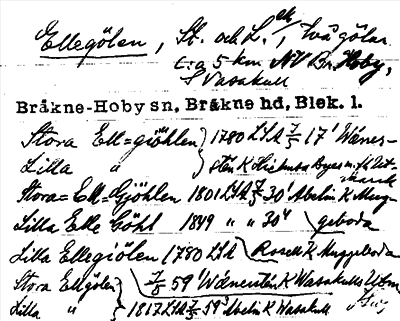 Ellegölen, St. och L. ek, två gölar
c:a 5 km NV Br. Hoby,
S Vasakull
Bråkne-Hoby sn, Bråkne hd, Blek. l.
Stora Ell=giöhlen } 1780 LSA 7/5 17' Wånes-
Lilla " sten K Hichusa Byes m. fl. Ut-
Stora=Ell=Gjöhlen 1801 LSA 7/5 30' Abelin K Mug-
Lilla Elle Göhl 1849 " " 30" geboda
Lilla Ellegiölen 1780 LSA Rosell K Muggeboda
Stora Ellgölen } 7/5 59' Wånesten K Wasakulls
Lilla " 1817 LSA 7/5 59 Abelin K Wasakull